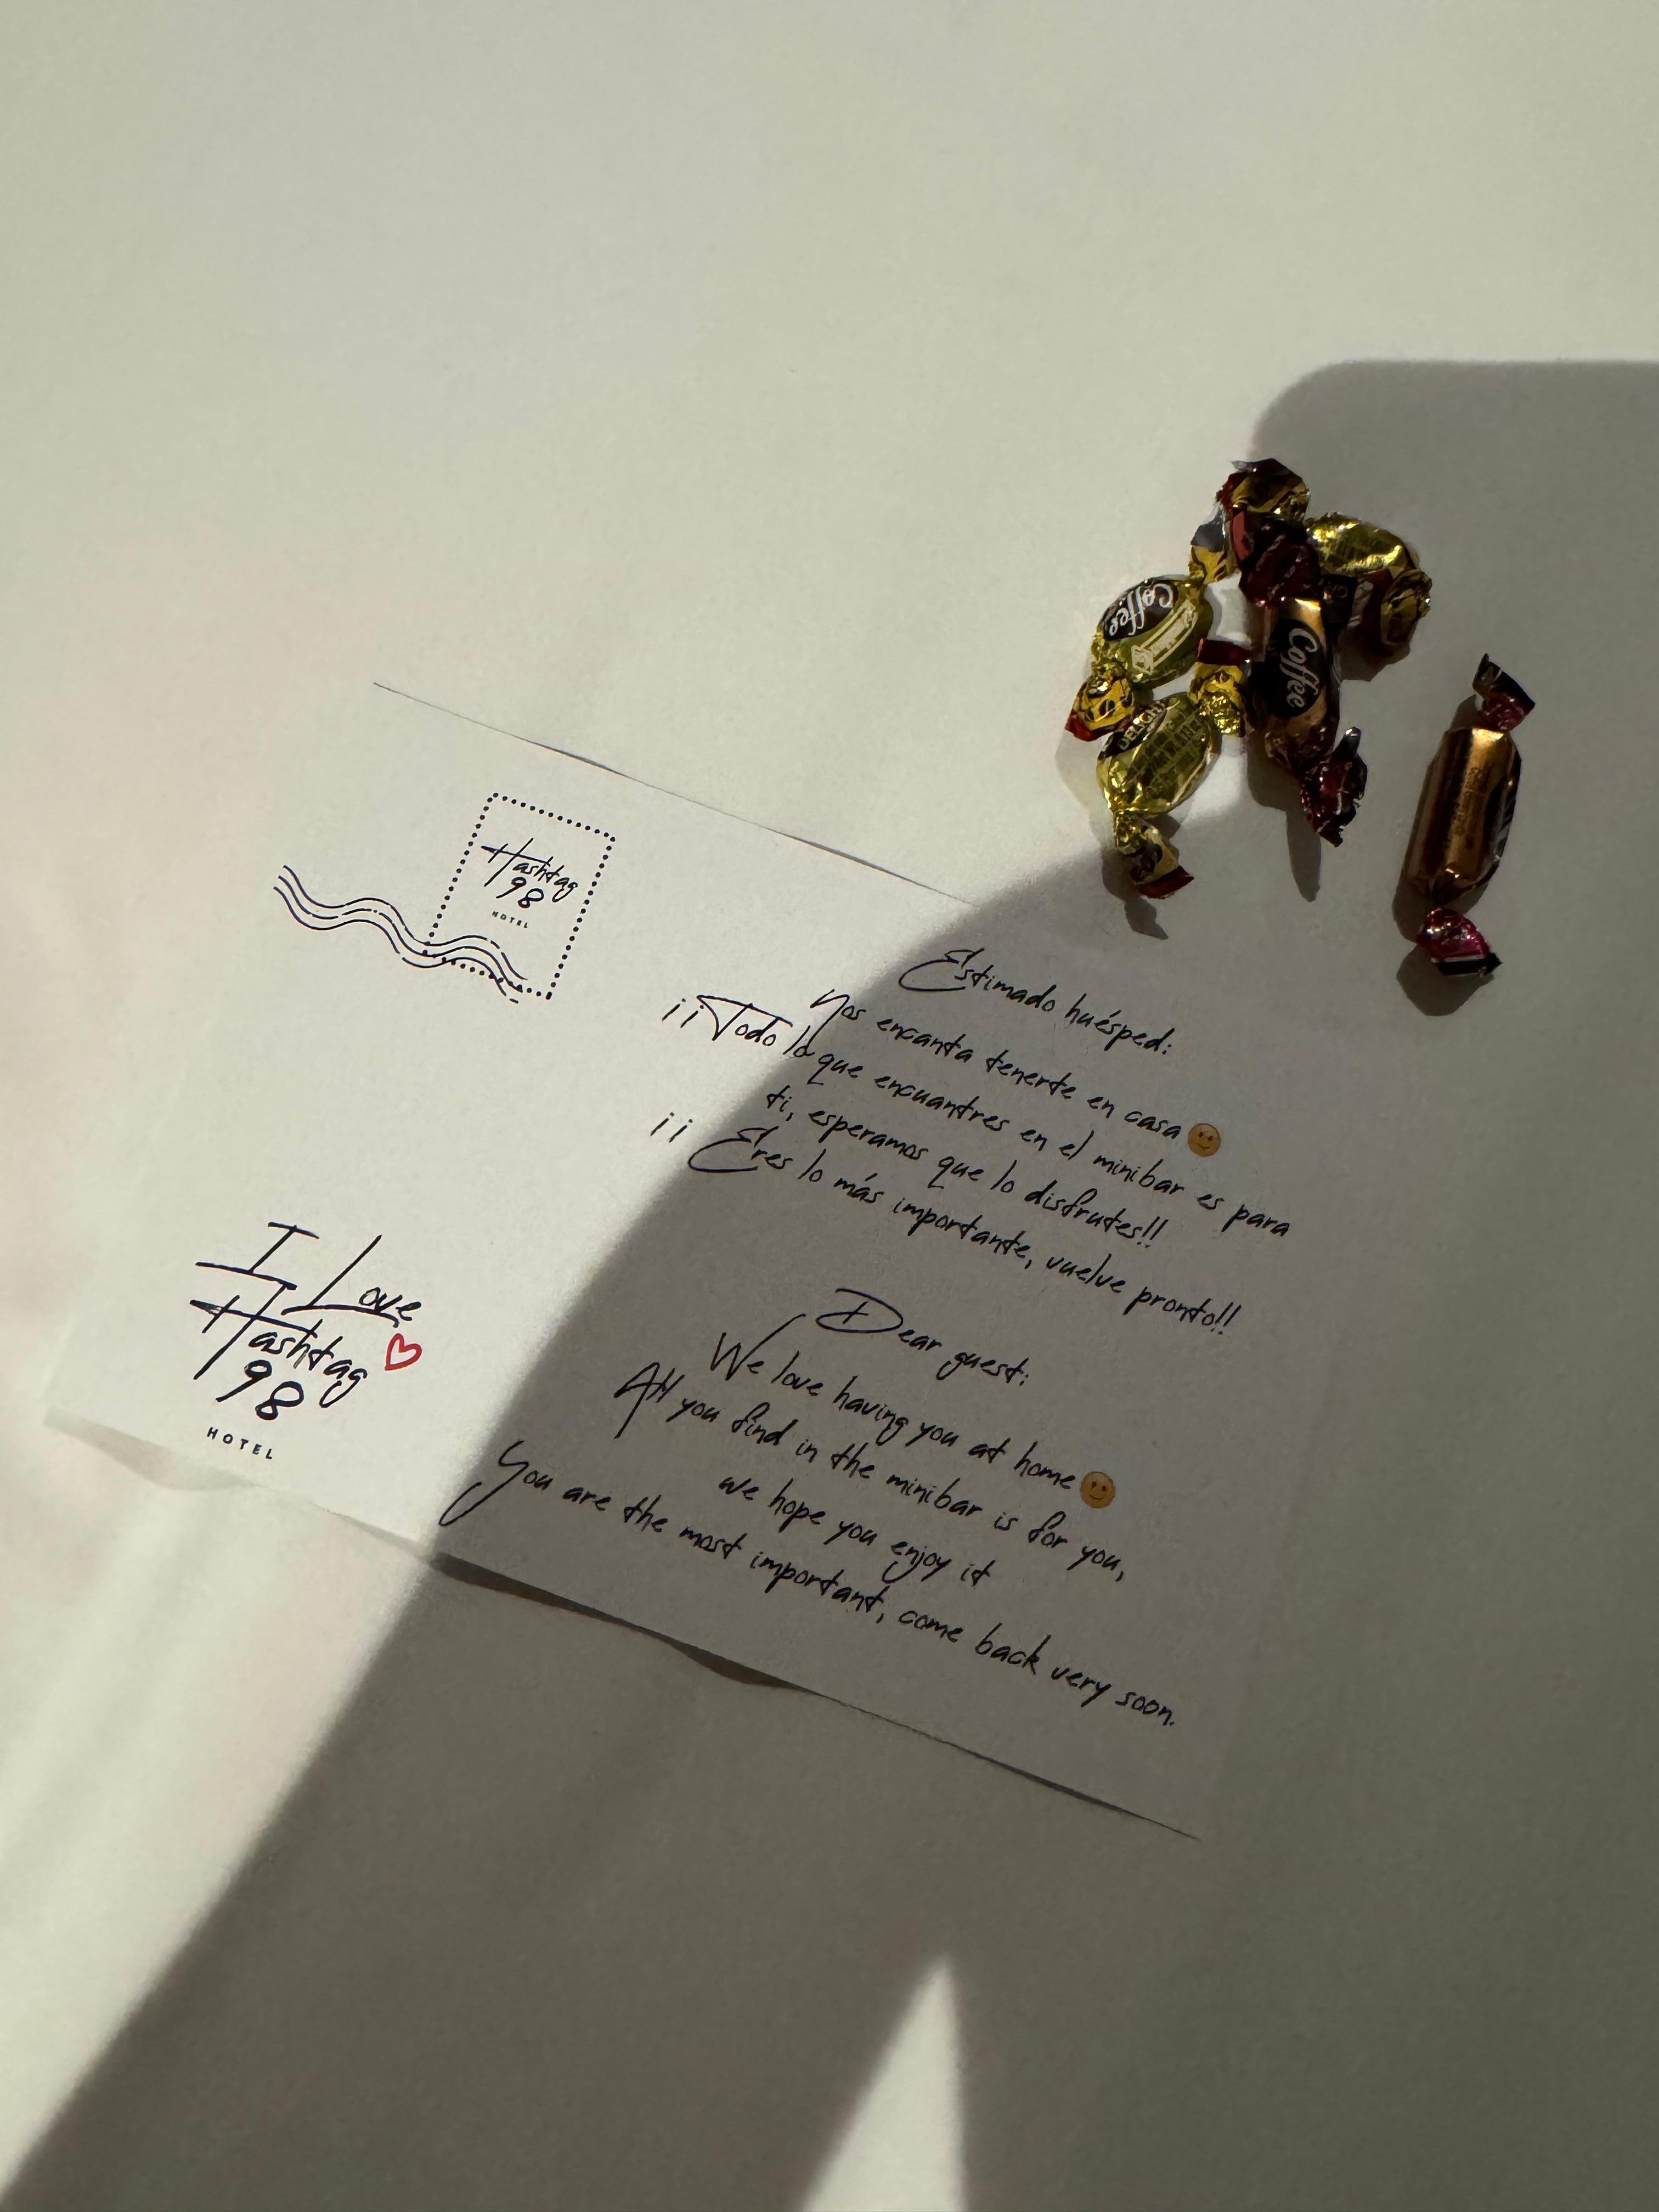 Hashtag
98
HOTEL
I Love
Hashtag
98
HOTEL
Estimado huésped:
Nos encanta tenerte en casa
¡¡Todo lo que encuentres en el minibar es para
ti, esperamos que lo disfrutes!!
¡¡ Eres lo más importante, vuelve pronto!!
Dear guest:
We love having you at home
All you find in the minibar is for you,
we hope you enjoy it
You are the most important, come back very soon.
Coffee
Coffee
DELIGHT